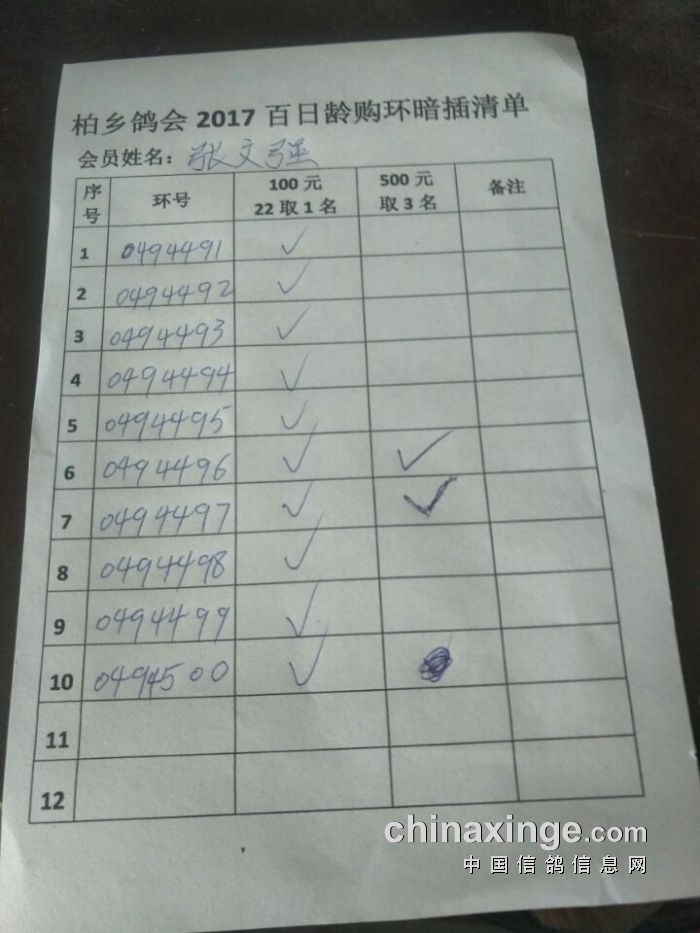 柏乡鸽会 2017 百日龄购环暗插清单
会员姓名：张文强
序号 环号 100 元 22 取 1 名 500 元 取 3 名 备注
1 0494491 ✓
2 0494492 ✓
3 0494493 ✓
4 0494494 ✓
5 0494495 ✓
6 0494496 ✓ ✓
7 0494497 ✓ ✓
8 0494498 ✓
9 0494499 ✓
10 0494500 ✓
11
12
chinaxinge.com
中国信鸽信息网